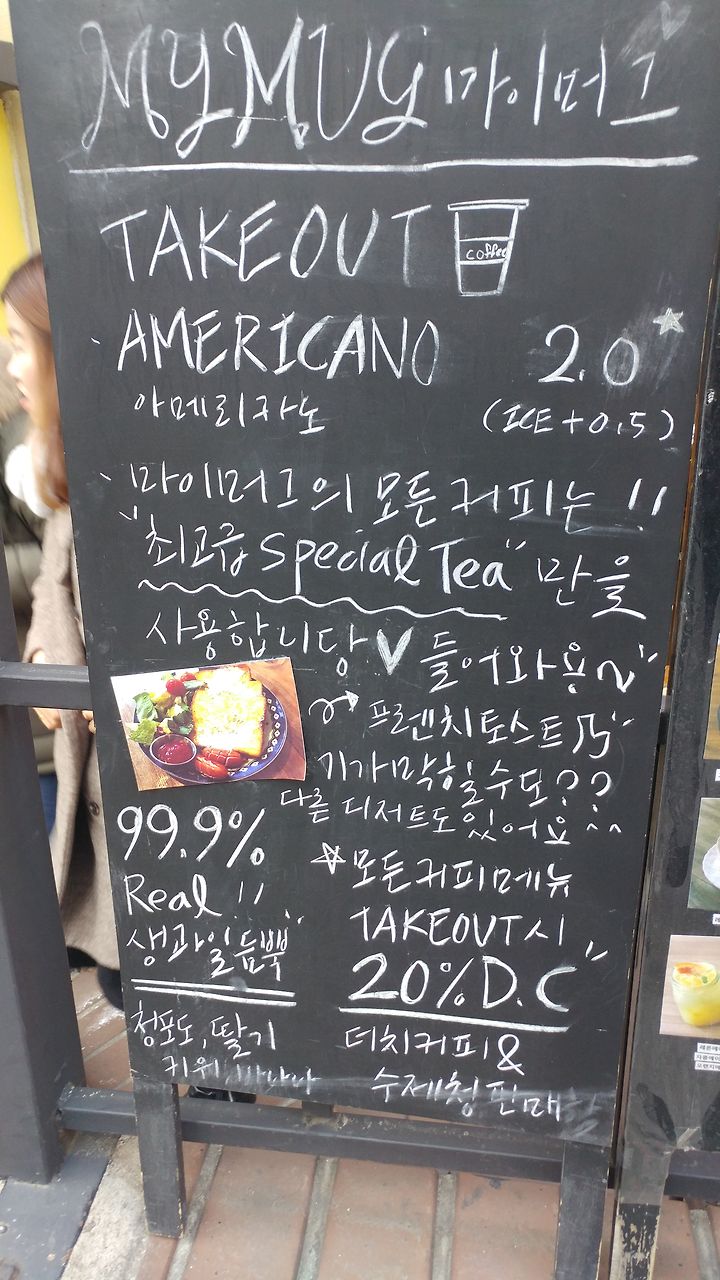 MYMUG 마이머그
TAKEOUT coffee
AMERICANO 2.0
아메리카노 (ICE+0.5)
마이머그의 모든커피는!!
"최고급 Special Tea" 만을
사용합니당♡ 들어와용~"
프렌치토스트
기가막힐수도??
다른 디저트도있어요^^
99.9%
Real!!
생과일듬뿍"
청포도, 딸기
키위, 바나나
☆모든커피메뉴
TAKEOUT시
20%D.C"
더치커피&
수제청판매